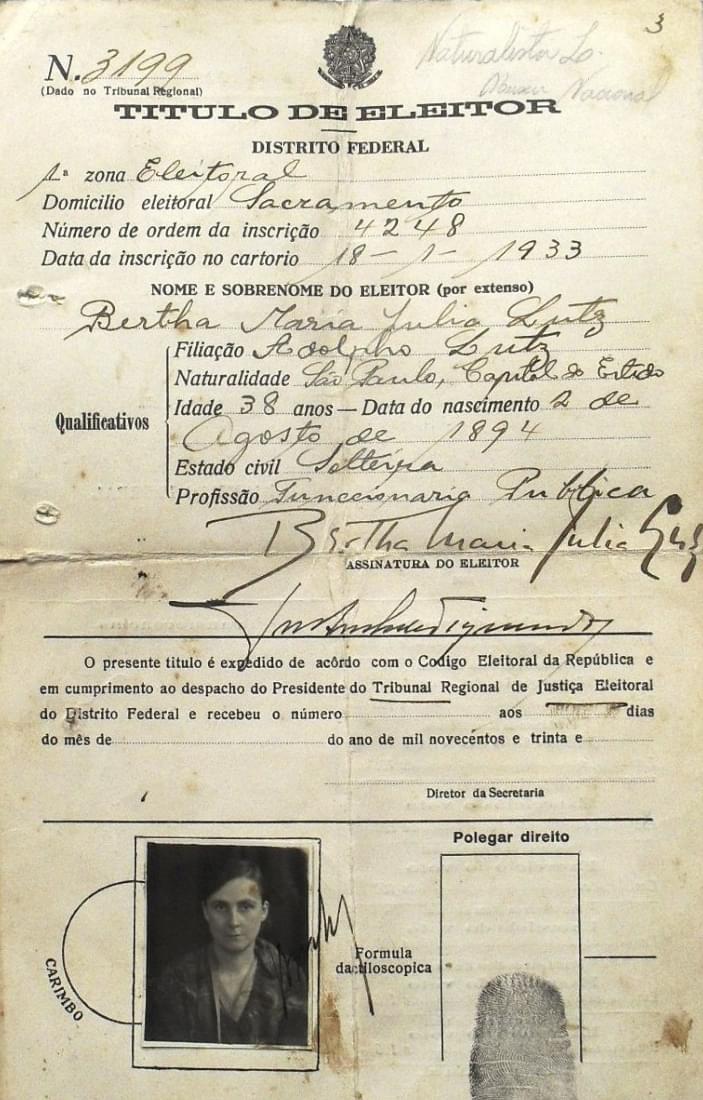 3
N. 3199
Naturalista
(Dado no Tribunal Regional)
Nacional
TITULO DE ELEITOR
DISTRITO FEDERAL
1ª zona Eleitoral
Domicilio eleitoral Sacramento
Número de ordem da inscrição 4248
Data da inscrição no cartorio 18-1-1933
NOME E SOBRENOME DO ELEITOR (por extenso)
Bertha Maria Julia Lutz
Filiação Adolpho Lutz
Naturalidade São Paulo, Capital do Estado
Qualificativos
Idade 38 anos — Data do nascimento 2 de
Agosto de 1894
Estado civil Solteira
Profissão Funccionaria Publica
Bertha Maria Julia Lutz
ASSINATURA DO ELEITOR
O presente titulo é expedido de acôrdo com o Codigo Eleitoral da República e
em cumprimento ao despacho do Presidente do Tribunal Regional de Justiça Eleitoral
do Distrito Federal e recebeu o número aos dias
do mês de do ano de mil novecentos e trinta e
Diretor da Secretaria
Polegar direito
CARIMBO
Formula
dactiloscopica